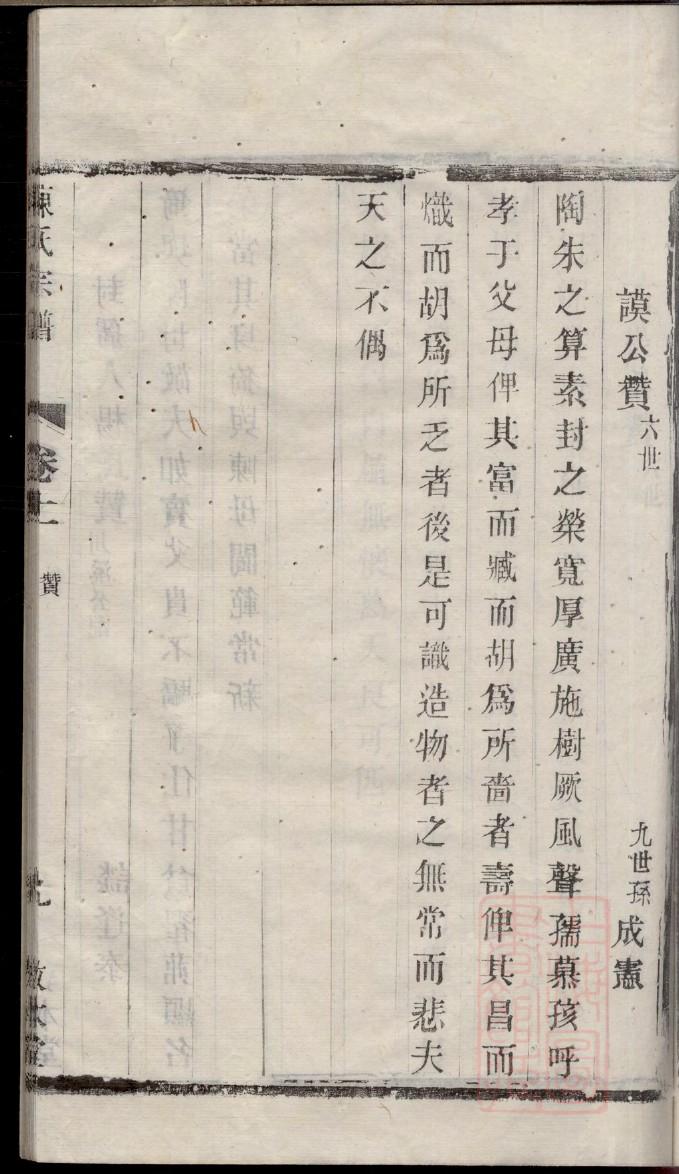 謨公贊六世 九世孫成憲
陶朱之算素封之榮寬厚廣施樹厥風聲孺慕孩呼
孝于父母俾其富而臧而胡爲所嗇者壽俾其昌而
熾而胡爲所乏者後是可識造物者之無常而悲夫
天之不偶
陳氏宗譜 卷十一 贊 九